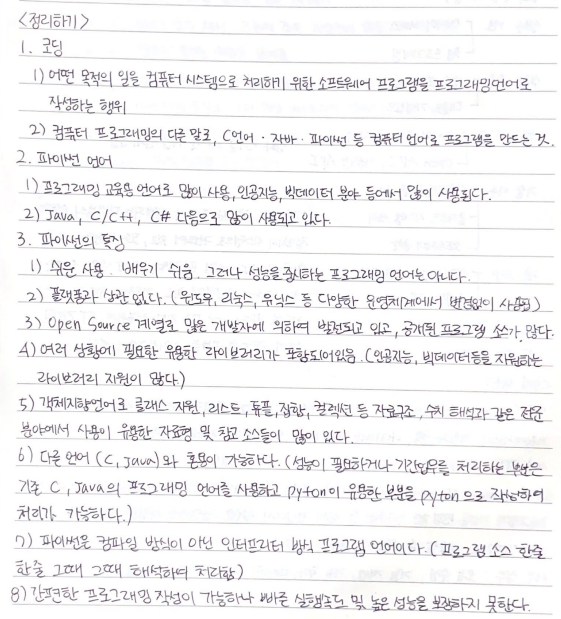 <정리하기>
1. 코딩
1) 어떤 목적의 일을 컴퓨터 시스템으로 처리하기 위한 소프트웨어 프로그램을 프로그래밍언어로
작성하는 행위
2) 컴퓨터 프로그래밍의 다른 말로, C언어 · 자바 · 파이썬 등 컴퓨터 언어로 프로그램을 만드는 것.
2. 파이썬 언어
1) 프로그래밍 교육용 언어로 많이 사용, 인공지능, 빅데이터 분야 등에서 많이 사용된다.
2) Java, C/C++, C# 다음으로 많이 사용되고 있다.
3. 파이썬의 특징
1) 쉬운 사용. 배우기 쉬움. 그러나 성능을 중시하는 프로그래밍 언어는 아니다.
2) 플랫폼과 상관 없다. (윈도우, 리눅스, 유닉스 등 다양한 운영체제에서 변경없이 사용됨)
3) Open Source 계열로 많은 개발자에 의하여 발전되고 있고, 공개된 프로그램 소스가 많다.
4) 여러 상황에 필요한 유용한 라이브러리가 포함되어있음. (인공지능, 빅데이터등을 지원하는
라이브러리 지원이 많다.)
5) 객체지향언어로 클래스 지원, 리스트, 튜플, 집합, 컬렉션 등 자료구조, 수치 해석과 같은 전문
분야에서 사용이 유용한 자료형 및 참고 소스들이 많이 있다.
6) 다른 언어 (C, Java)와 혼용이 가능하다. (성능이 필요하거나 기간업무를 처리하는 부분은
기존 C, Java의 프로그래밍 언어를 사용하고 Python이 유용한 부분을 pyton으로 작성하여
처리가 가능하다.)
7) 파이썬은 컴파일 방식이 아닌 인터프리터 방식 프로그램 언어이다. (프로그램 소스 한줄
한줄 그때 그때 해석하여 처리함)
8) 간편한 프로그래밍 작성이 가능하나 빠른 실행속도 및 높은 성능을 보장하지 못한다.